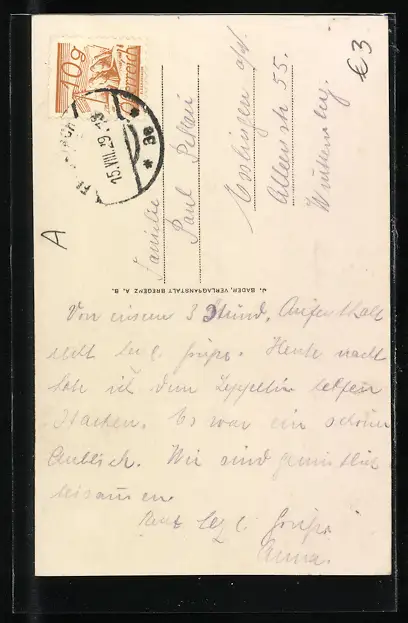 10g
Österreich
15.VIII.29
* 3a *
€3
A
Familie
Paul
Esslingen a/N.
Allee str 55.
Württembg.
J. BADER, VERLAGSANSTALT BREGENZ A. B.
Von einem 3 Stünd. Aufenthalt
herzl. Grüße. Heute nacht
ich den Zeppelin
Es war ein schöner
Anblick. Wir sind gemütlich
beisammen.
herzl. Grüße
Anna.